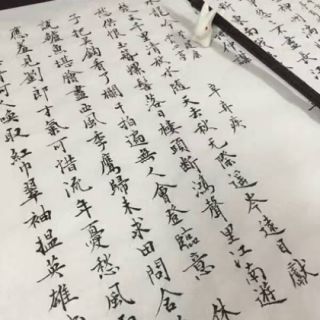 神州滿
不盡長
辛弃疾
天千里清秋水隨天去秋无際遥岑遠目獻
供恨玉簪螺髻落日樓頭斷鴻聲里江南遊
子把吴鈎看了欄干拍遍無人會登臨意休
說鱸魚堪膾盡西風季鷹歸未求田問舍
應羞見劉郎才氣可惜流年憂愁風
何人喚取紅巾翠袖揾英雄